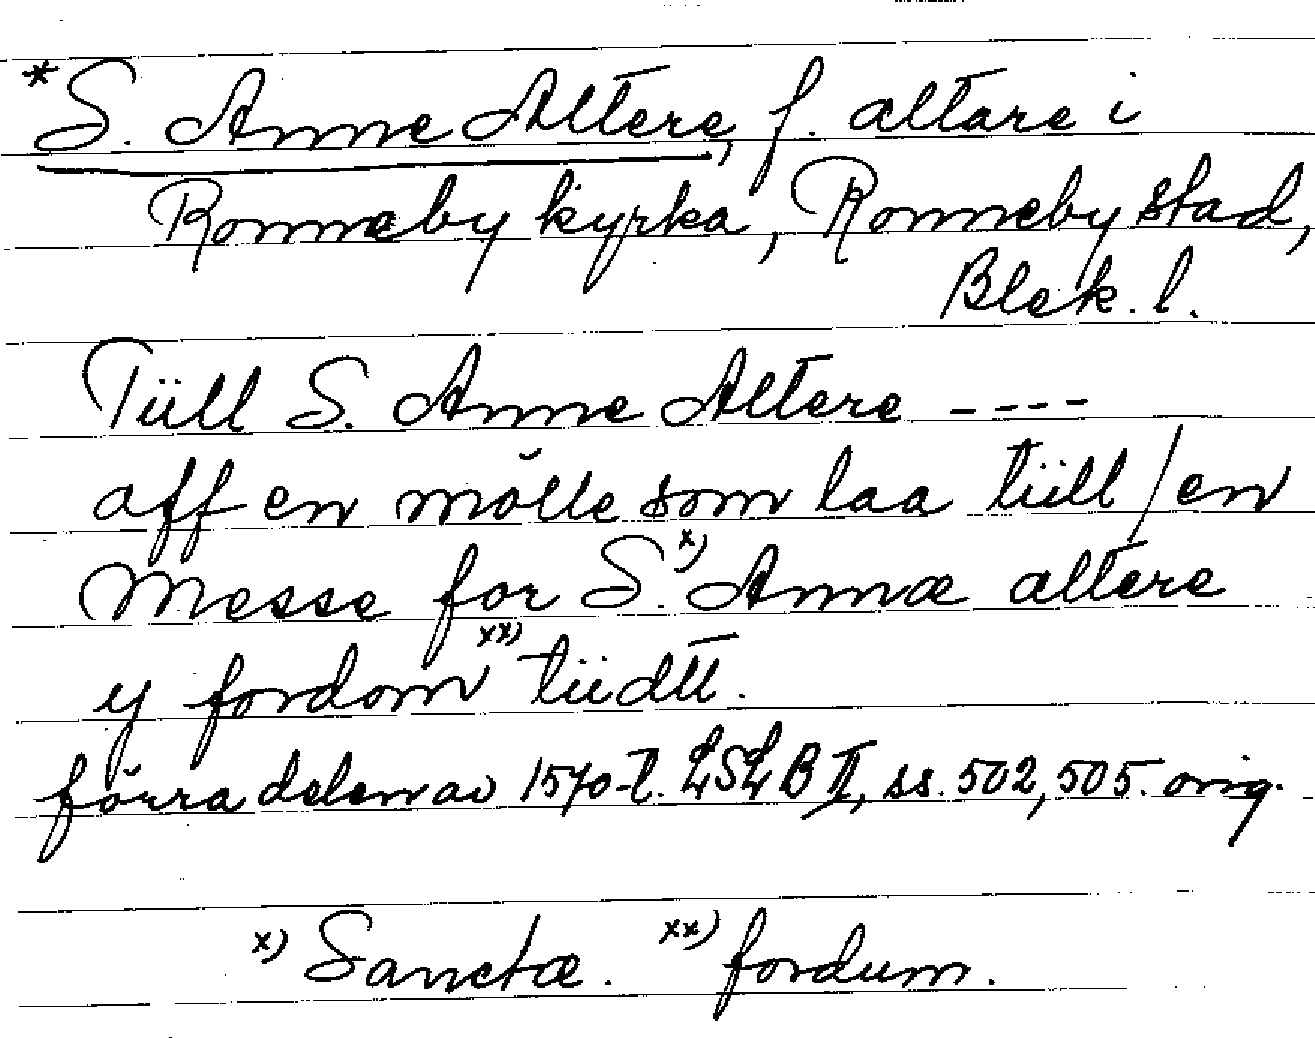 *S. Anne Altere, f. altare i
Ronneby kyrka, Ronneby stad,
Blek. l.
Tüll S. Anne Altere ----
aff en mölle som laa tüll / en
Messe for S.x) Annæ altere
y fordomxx) tüdtt.
förra delen av 1570-t. LSLB II, ss. 502, 505. orig.
x) Sanctæ. xx) fordum.